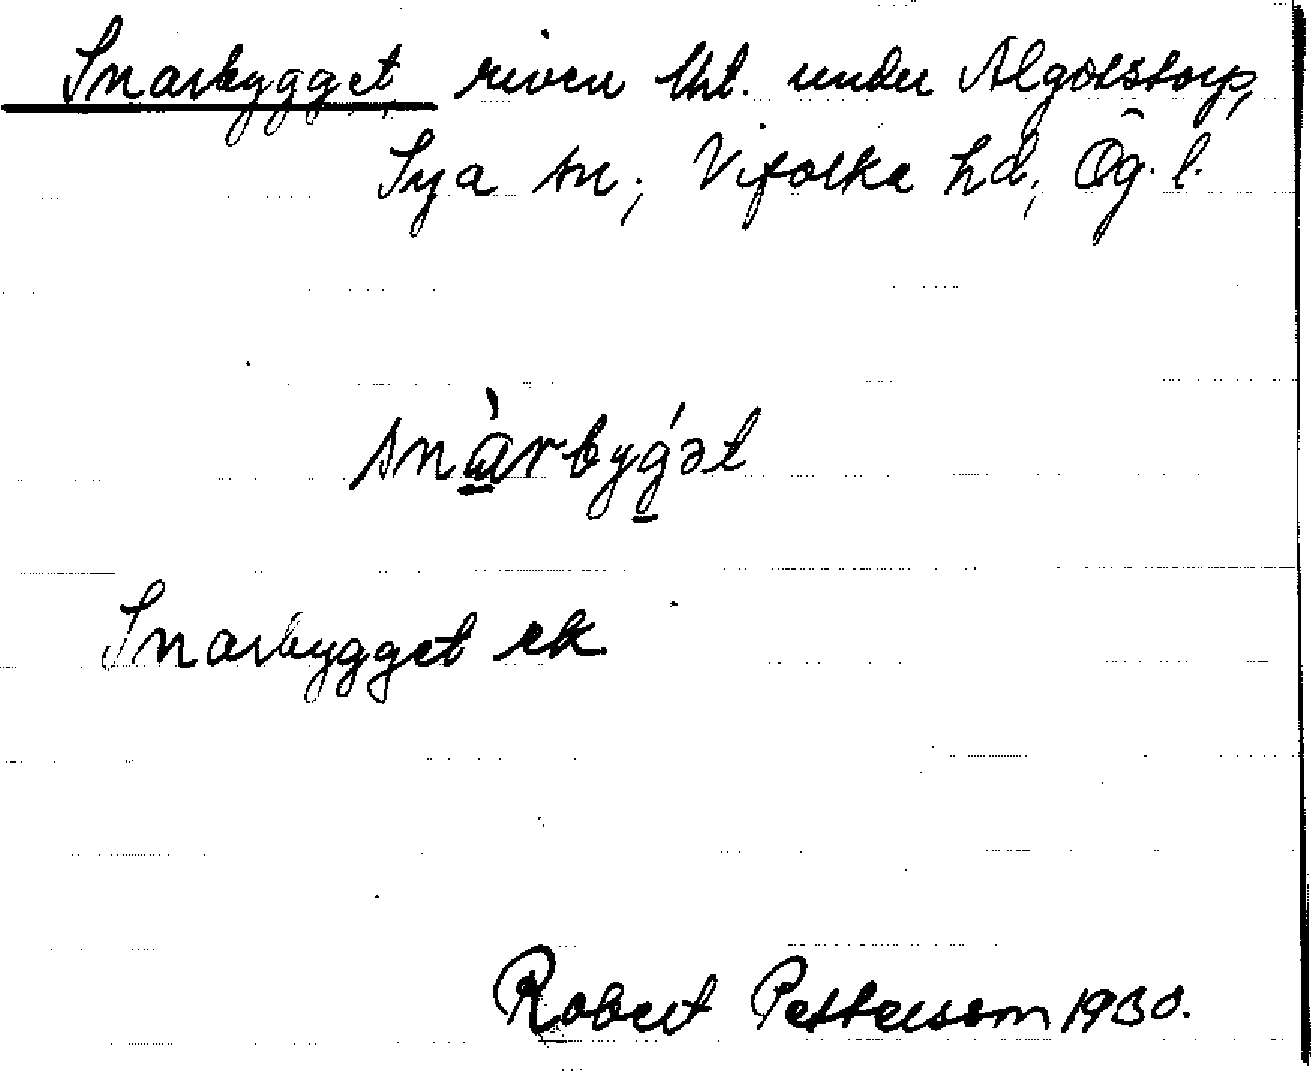 Snarbygget, riven lht. under Algotstorp,
Sya sn; Vifolka hd; Ög. l.
snàrbyǵət
Snarbygget ek
Robert Pettersson 1930.